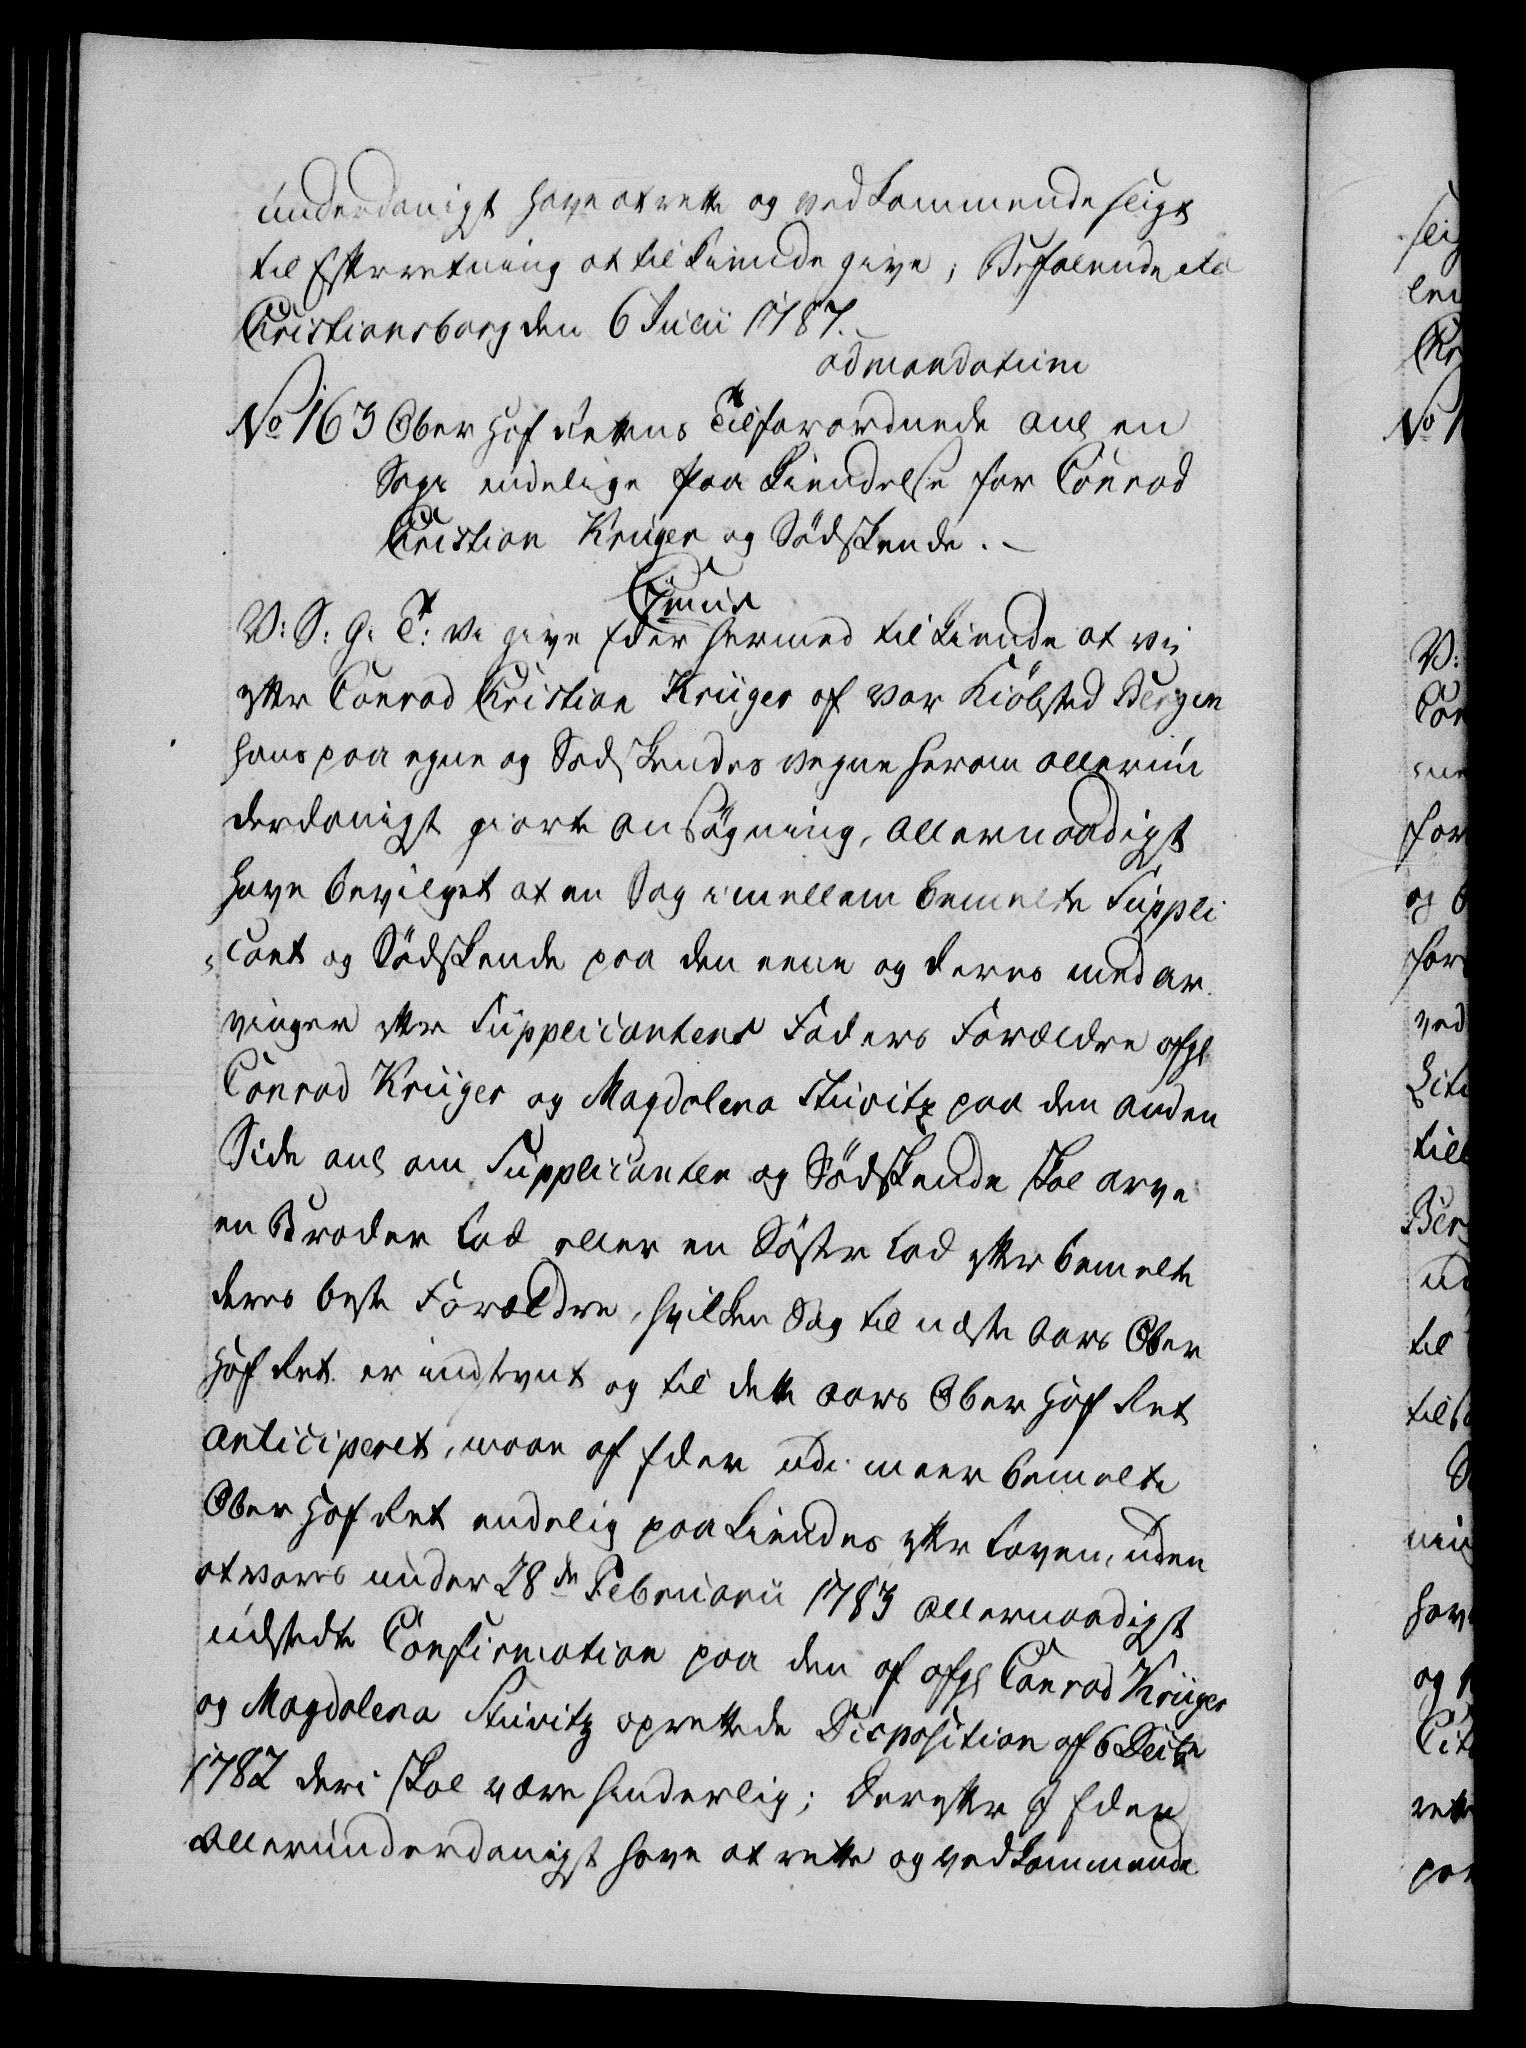 underdanigst have at rette og vedkommende sligt
til Efterretning at tilkiende give; Befalende etc
Christiansborg den 6 Julii 1787.
admandatum
No 163 Ober Hof Rettens Tilforordnede anl en
Sags endelige paa Kiendelse for Conrad
Christian Krüger og Södskende.
C7mus
V: S: G: T: Vi give Eder hermed tilkiende at vi
efter Conrad Christian Krüger af vor Kiöbsted Bergen
hans paa egne og Sødskendes vegne herom allerun
derdanigst giorte Ansögning, allernaadigst
have bevilget at en Sag imellem bemelte Suppli
cant og Södskende paa den eene og deres med ar
vinger efter Supplicantens Faders Forældre afgl
Conrad Krüger og Magdalena Stuvitz paa den anden
Side anl om Supplicanten og Södskende skal arve
en Broder Lod eller en Söster Lod efter bemelte
deres beste Forældre, hvilken Sag til næste Aars Ober
Hof Ret er indstevnt og til dette aars Ober Hof Ret
anticiperet, maae af Eder udi meer bemelte
Ober Hof Ret endelig paa Kiendes efter Loven, uden
at vores under 28de Februarii 1783 allernaadigst
udstedte Confirmation paa den af afgl Conrad Krüger
og Magdalena Stuvitz oprettede Disposition af 6 Decbr
1782 deri skal være hinderlig; Derefter I Eder
allerunderdanigst have at rette og vedkommende